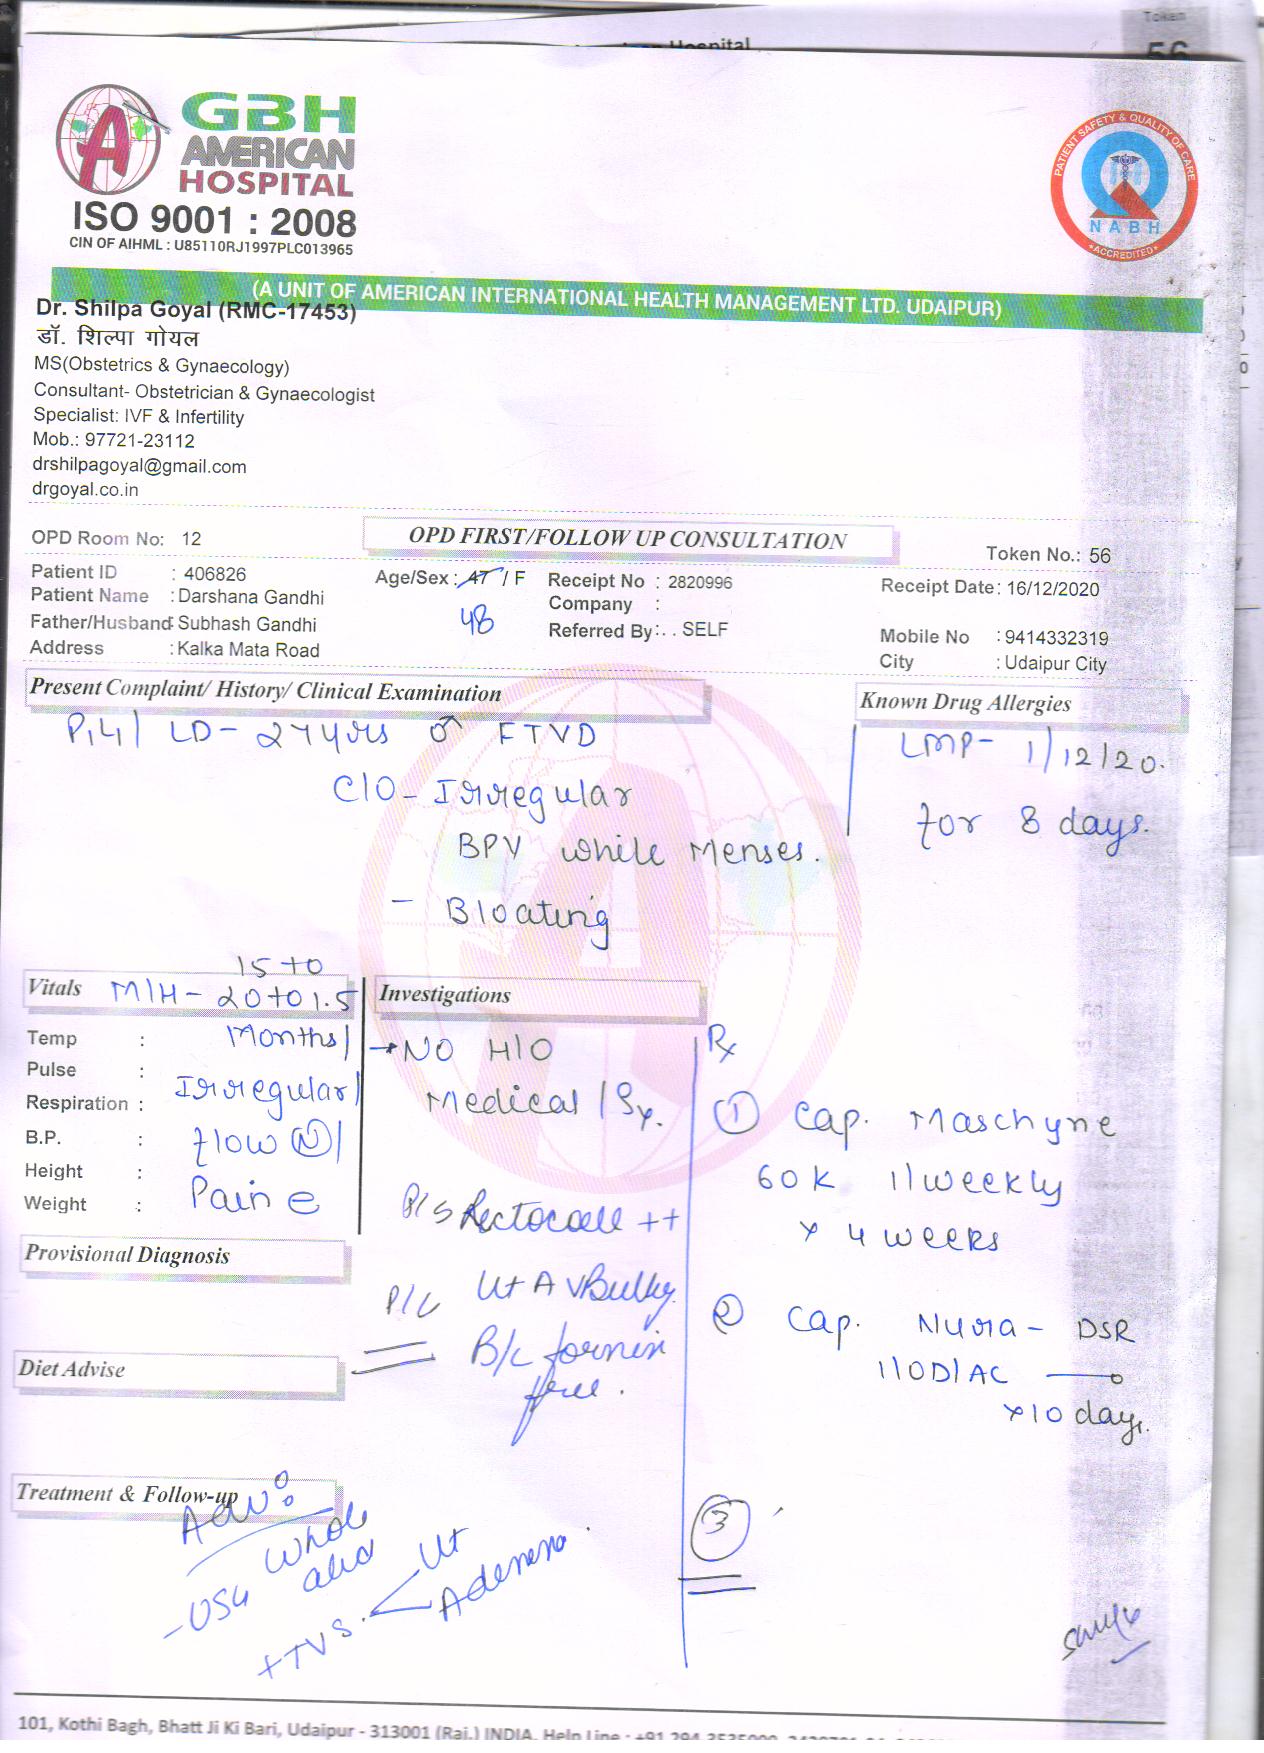 Token
56
GBH
AMERICAN
HOSPITAL
ISO 9001 : 2008
CIN OF AIHML : U85110RJ1997PLC013965
PATIENT SAFETY & QUALITY OF CARE
NABH
ACCREDITED
(A UNIT OF AMERICAN INTERNATIONAL HEALTH MANAGEMENT LTD. UDAIPUR)
Dr. Shilpa Goyal (RMC-17453)
डॉ. शिल्पा गोयल
MS(Obstetrics & Gynaecology)
Consultant- Obstetrician & Gynaecologist
Specialist: IVF & Infertility
Mob.: 97721-23112
drshilpagoyal@gmail.com
drgoyal.co.in
OPD Room No: 12 OPD FIRST/FOLLOW UP CONSULTATION Token No.: 56
Patient ID : 406826 Age/Sex : 47 / F Receipt No : 2820996 Receipt Date: 16/12/2020
48
Patient Name : Darshana Gandhi Company :
Father/Husband: Subhash Gandhi Referred By: . . SELF Mobile No : 9414332319
Address : Kalka Mata Road City : Udaipur City
Present Complaint/ History/ Clinical Examination Known Drug Allergies
P1L1 / LD - 27 yrs ♂ FTVD LMP - 1/12/20.
C/O - Irregular for 8 days.
BPV while Menses.
- Bloating
15 to
Vitals M/H - 20 to 1.5 Investigations
Months/
Temp : → NO H/O Rx
Pulse : Irregular/ Medical / Sx.
Respiration :
B.P. : flow (N)/ ① Cap. Maschyne
Height : 60K 1/weekly
Weight : Pain x 4 weeks
P/S Rectocoele ++
Provisional Diagnosis
P/V Ut AV Bulky
B/L fornix
free.
② Cap. Nura - DSR
1/OD/AC
x 10 days.
Diet Advise
Treatment & Follow-up
Adv:
- USG whole abd
+ TVS. Ut
Adenexa
③
101, Kothi Bagh, Bhatt Ji Ki Bari, Udaipur - 313001 (Raj.) INDIA, Help Line :